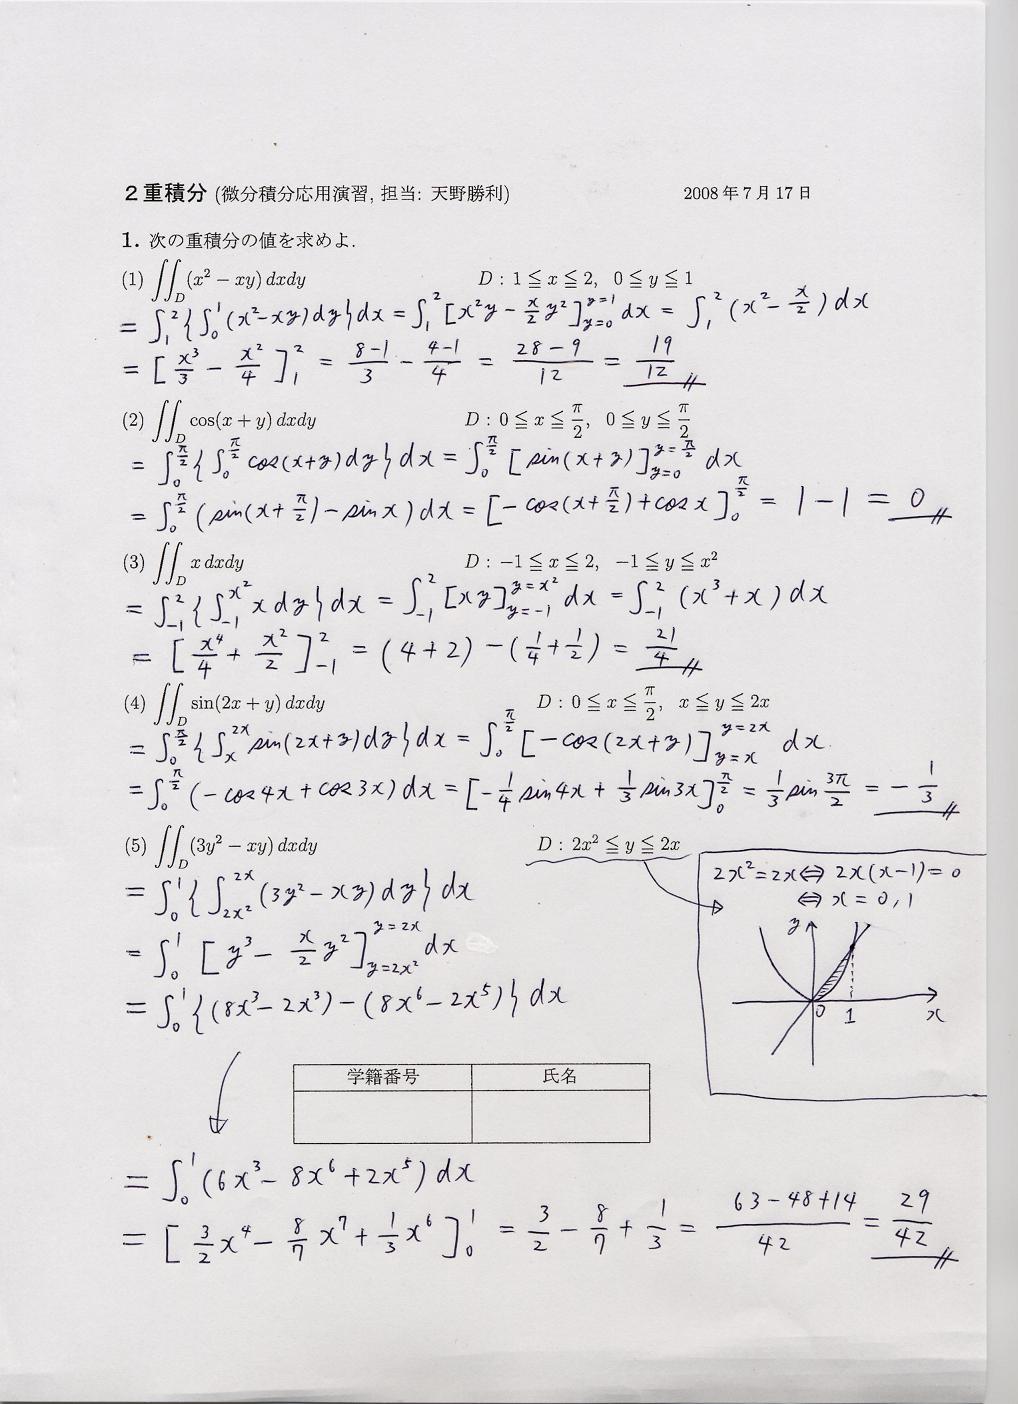 2重積分 (微分積分応用演習, 担当: 天野勝利) 2008年7月17日
1. 次の重積分の値を求めよ.
(1) ∬_D (x² − xy) dxdy D : 1 ≦ x ≦ 2, 0 ≦ y ≦ 1
= ∫₁² { ∫₀¹ (x² − xy) dy } dx = ∫₁² [ x²y − x/2 y² ]_{y=0}^{y=1} dx = ∫₁² (x² − x/2) dx
= [ x³/3 − x²/4 ]₁² = (8−1)/3 − (4−1)/4 = (28−9)/12 = 19/12
(2) ∬_D cos(x + y) dxdy D : 0 ≦ x ≦ π/2, 0 ≦ y ≦ π/2
= ∫₀^{π/2} { ∫₀^{π/2} cos(x+y) dy } dx = ∫₀^{π/2} [ sin(x+y) ]_{y=0}^{y=π/2} dx
= ∫₀^{π/2} ( sin(x + π/2) − sin x ) dx = [ −cos(x + π/2) + cos x ]₀^{π/2} = 1 − 1 = 0
(3) ∬_D x dxdy D : −1 ≦ x ≦ 2, −1 ≦ y ≦ x²
= ∫₋₁² { ∫₋₁^{x²} x dy } dx = ∫₋₁² [ xy ]_{y=−1}^{y=x²} dx = ∫₋₁² (x³ + x) dx
= [ x⁴/4 + x²/2 ]₋₁² = (4+2) − (1/4 + 1/2) = 21/4
(4) ∬_D sin(2x + y) dxdy D : 0 ≦ x ≦ π/2, x ≦ y ≦ 2x
= ∫₀^{π/2} { ∫ₓ^{2x} sin(2x+y) dy } dx = ∫₀^{π/2} [ −cos(2x+y) ]_{y=x}^{y=2x} dx.
= ∫₀^{π/2} (−cos4x + cos3x) dx = [ −1/4 sin4x + 1/3 sin3x ]₀^{π/2} = 1/3 sin 3π/2 = −1/3
(5) ∬_D (3y² − xy) dxdy D : 2x² ≦ y ≦ 2x
2x² = 2x ⇔ 2x(x−1) = 0
⇔ x = 0, 1
y
0 1 x
= ∫₀¹ { ∫_{2x²}^{2x} (3y² − xy) dy } dx
= ∫₀¹ [ y³ − x/2 y² ]_{y=2x²}^{y=2x} dx
= ∫₀¹ { (8x³ − 2x³) − (8x⁶ − 2x⁵) } dx
学籍番号 氏名
= ∫₀¹ (6x³ − 8x⁶ + 2x⁵) dx
= [ 3/2 x⁴ − 8/7 x⁷ + 1/3 x⁶ ]₀¹ = 3/2 − 8/7 + 1/3 = (63−48+14)/42 = 29/42